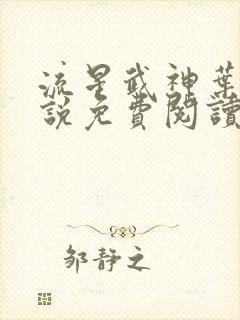 流星武神葉
說免費閱讀
邹静之